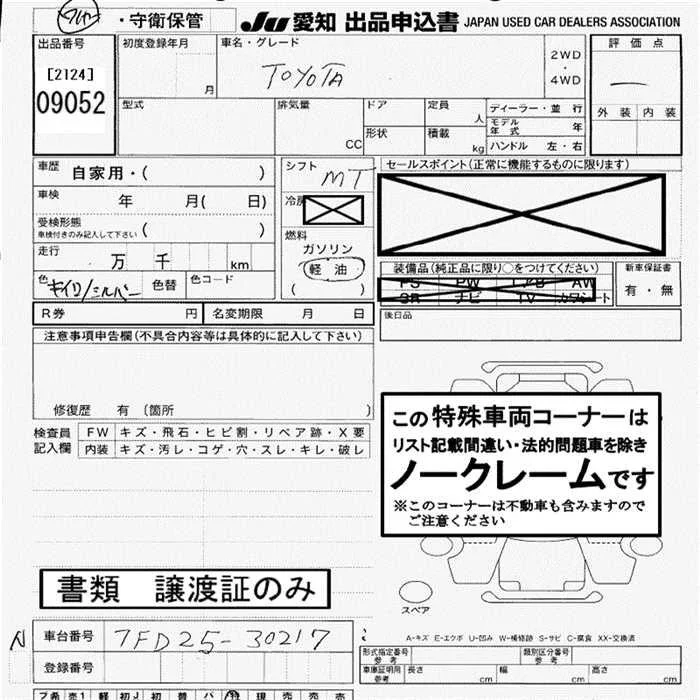 ・守衛保管 JU 愛知 出品申込書 JAPAN USED CAR DEALERS ASSOCIATION
出品番号
[2124]
09052
初度登録年月
月
車名・グレード
TOYOTA
2WD
・
4WD
評価点
外装 内装
型式
排気量
CC
ドア
形状
定員
人
積載
kg
ディーラー・並行
モデル年式 年
ハンドル 左・右
車歴 自家用・( )
車検 年 月( 日)
受検形態
車検付きのみ記入して下さい ( )
走行 万 千 km
色 キイロ/シルバー 色替 色コード
シフト
MT
冷房
燃料
ガソリン
軽油
( )
セールスポイント(正常に機能するものに限ります)
装備品(純正品に限り○をつけてください)
PS PW エアB AW
SR ナビ TV カワシート
新車保証書
有・無
R券 円 名変期限 月 日
後日品
注意事項申告欄(不具合内容等は具体的に記入して下さい)
修復歴 有 〔箇所 〕
検査員
記入欄
FW キズ・飛石・ヒビ割・リペア跡・X要
内装 キズ・汚レ・コゲ・穴・スレ・キレ・破レ
この特殊車両コーナーは
リスト記載間違い・法的問題車を除き
ノークレームです
※このコーナーは不動車も含みますので
ご注意ください
書類 譲渡証のみ
スペア
N 車台番号 7FD25-30217
登録番号
A-キズ E-エクボ U-凹み W-補修跡 S-サビ C-腐食 XX-交換済
形式指定番号
参考
類別区分番号
参考
車庫証明用
参考
長さ cm 幅 cm 高さ cm